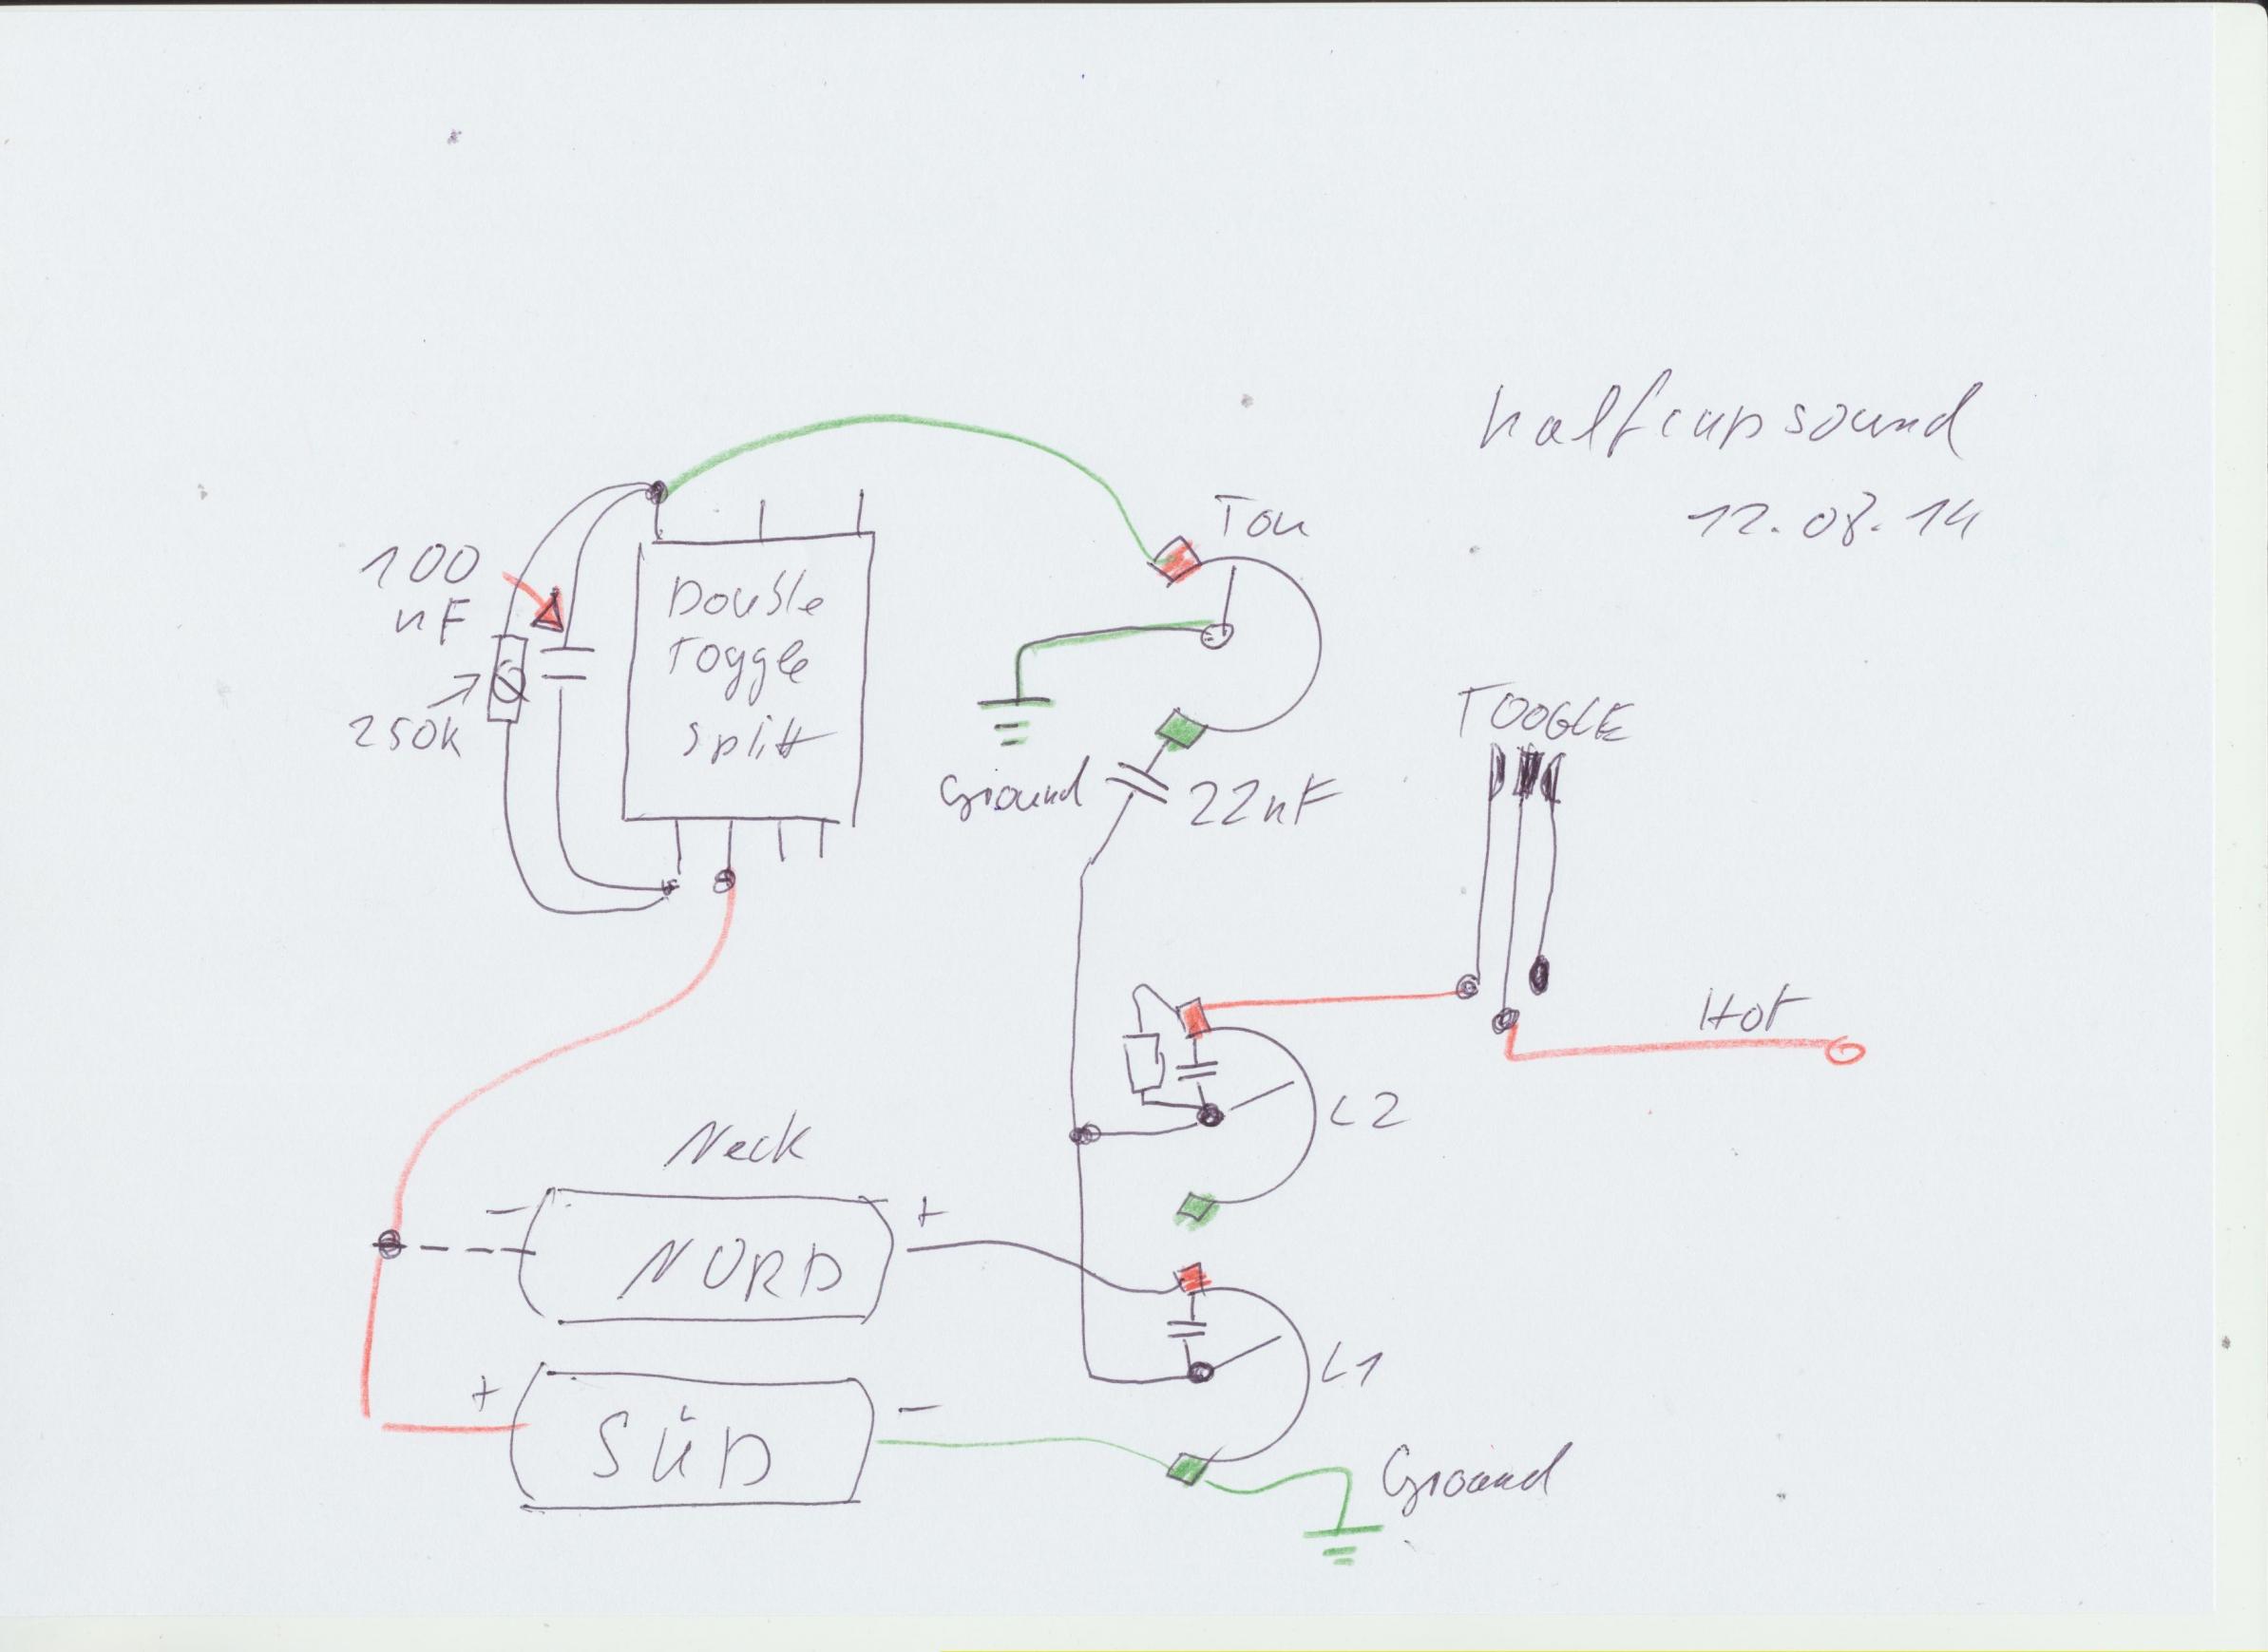 halfcupsound
12.08.14
Ton
100
nF
250k
Double
Toggle
Splitt
Ground
22nF
TOOGLE
Hot
L2
Neck
-
+
NORD
L1
+
-
SÜD
Ground